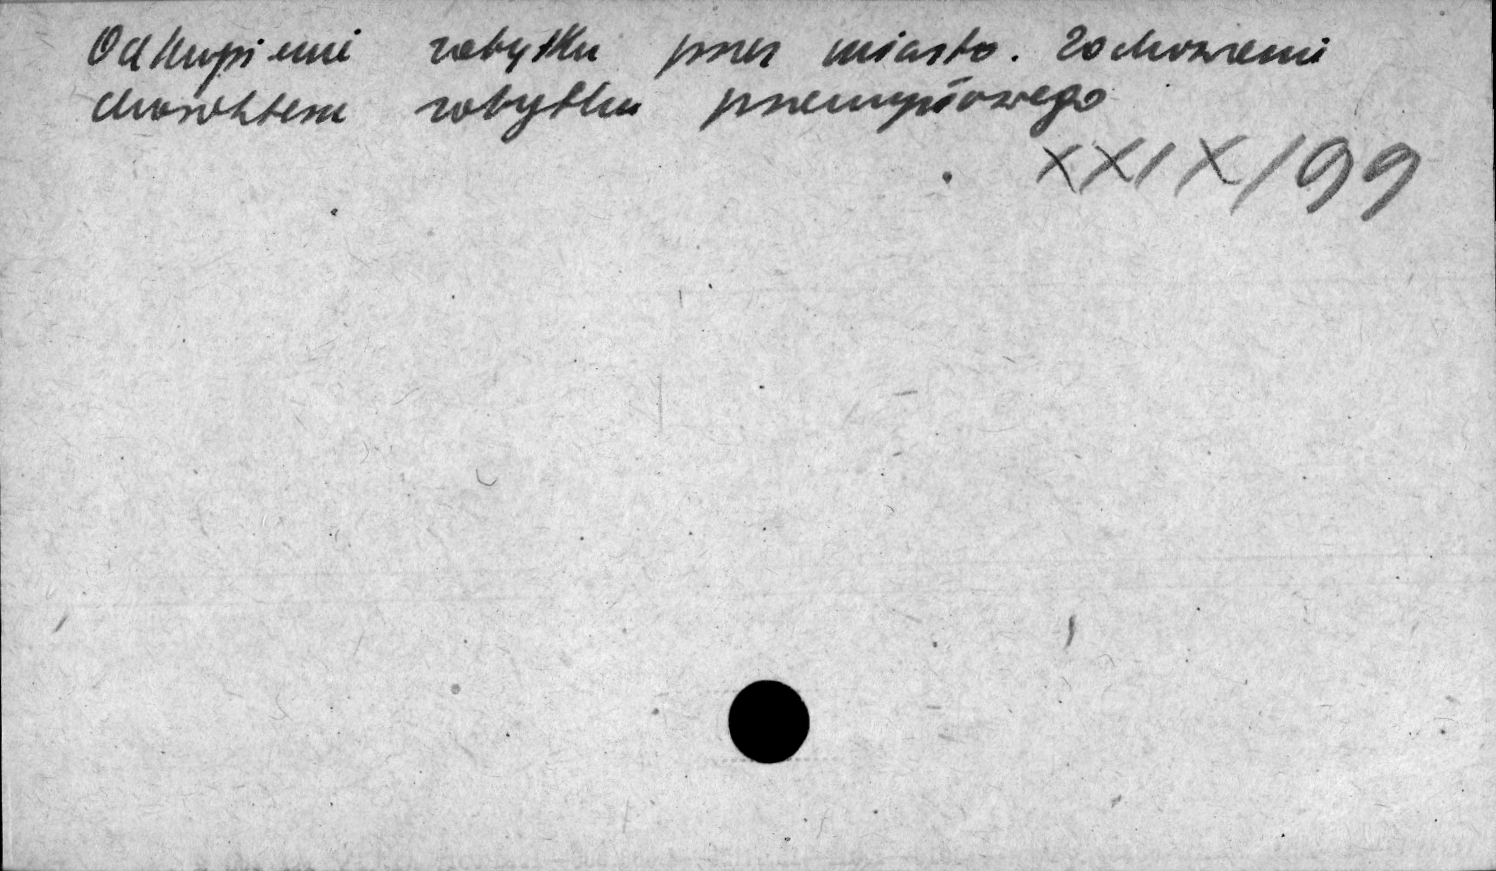 Odkupienie zabytku przez miasto. Zachowanie
charakteru zabytku przemysłowego
XXIX/99